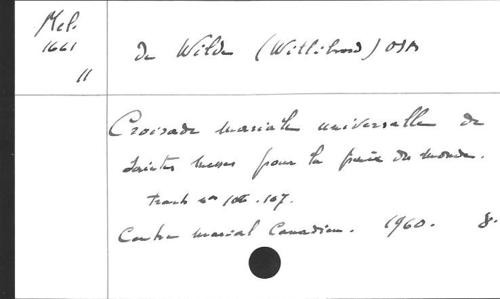 Mel.
1661
11
de Wilde (Willibrord) OSA
Croisade mariale universelle de
saintes messes pour la paix du monde.
Tracts nos 106-107.
Centre marial Canadien. 1960. 8.